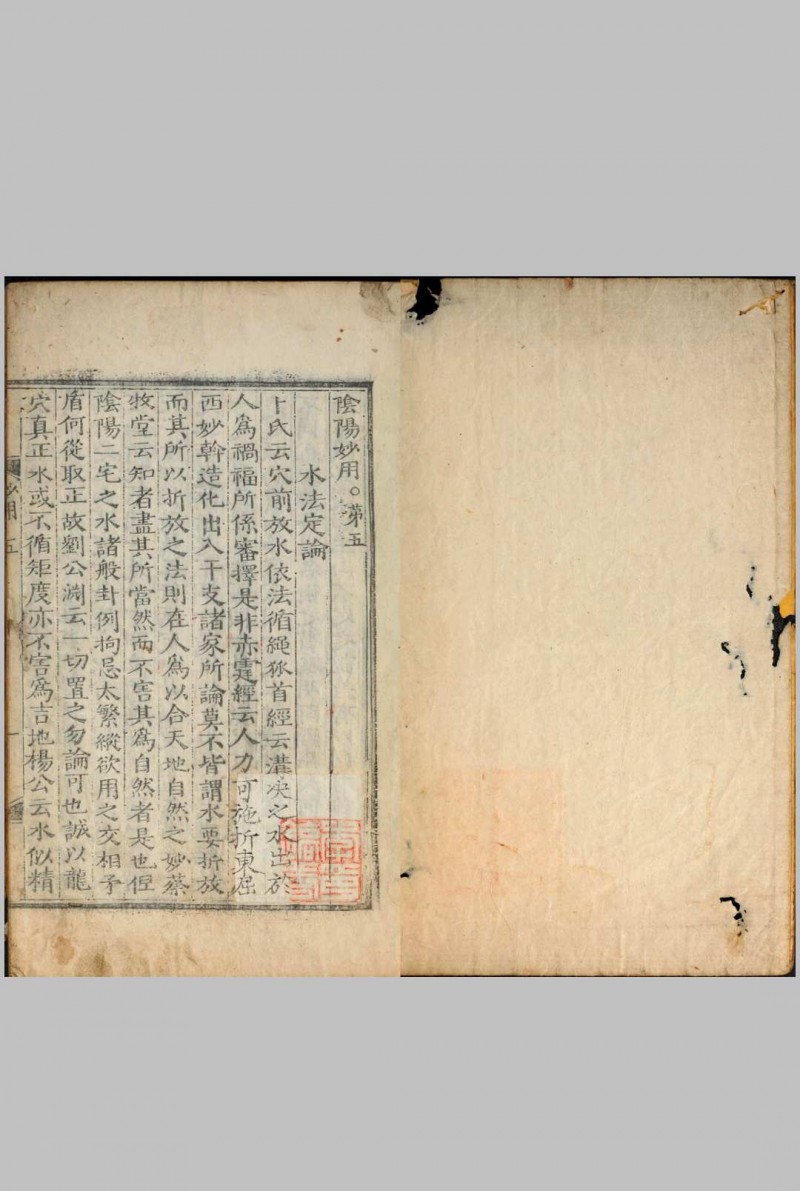 陰陽妙用。第五
水法定論
卜氏云穴前放水依法循繩狐首經云溝洫之水出於
人爲禍福所係審擇是非赤霆經云人力可施折東屈
西妙幹造化出入干支諸家所論莫不皆謂水要折放
而其所以折放之法則在人爲以合天地自然之妙蔡
牧堂云知者盡其所當然而不害其爲自然者是也但
陰陽二宅之水諸般卦例拘忌太繁縱欲用之交相矛
盾何從取正故劉公淵云一切置之勿論可也誠以龍
穴真正水或不循矩度亦不害爲吉地楊公云水似精
妙用 五